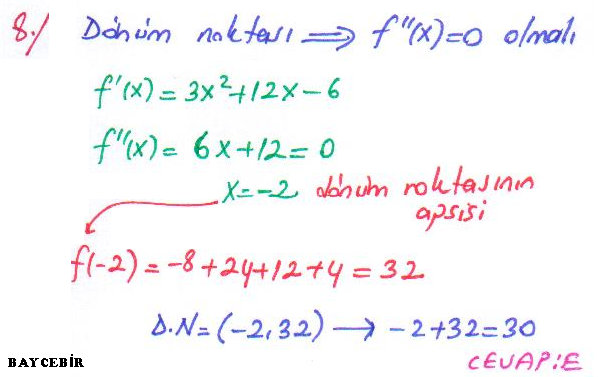 8./ Dönüm noktası ⟹ f''(x)=0 olmalı
f'(x) = 3x²+12x-6
f''(x) = 6x+12=0
x=-2 dönüm noktasının
apsisi
f(-2) = -8+24+12+4 = 32
D.N = (-2,32) → -2+32=30
CEVAP:E
BAYCEBİR